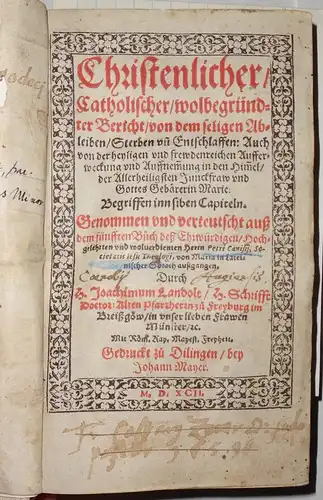 Christenlicher/
Catholischer/wolbegründ-
ter Bericht/von dem seligen Ab-
leiben/Sterben vñ Entschlaffen: Auch
von der heyligen vnd frewdenreichen Auffer-
weckung vnd Auffnemung in den Himel/
der Allerheiligsten Junckfraw vnd
Gottes Gebärerin Marie.
Begriffen inn siben Capiteln.
Genommen vnd verteutscht auß
dem fünfften Buch deß Ehrwürdigen/Hoch-
gelehrten vnd wolverdienten Herrn Petri Canisij, So-
cietatis Iesu Theologi, von Maria in Latei-
nischer Sprach außgangen.
Durch
H. Joachimum Landolt/H. Schrifft
Doctor: Alten Pfarrherrn zu Freyburg im
Breißgöw/in vnser lieben Frawen
Münster/ꝛc.
Mit Röm. Kay. Mayest. Freyheit.
Gedruckt zu Dilingen/bey
Johann Mayer.
M. D. XCII.